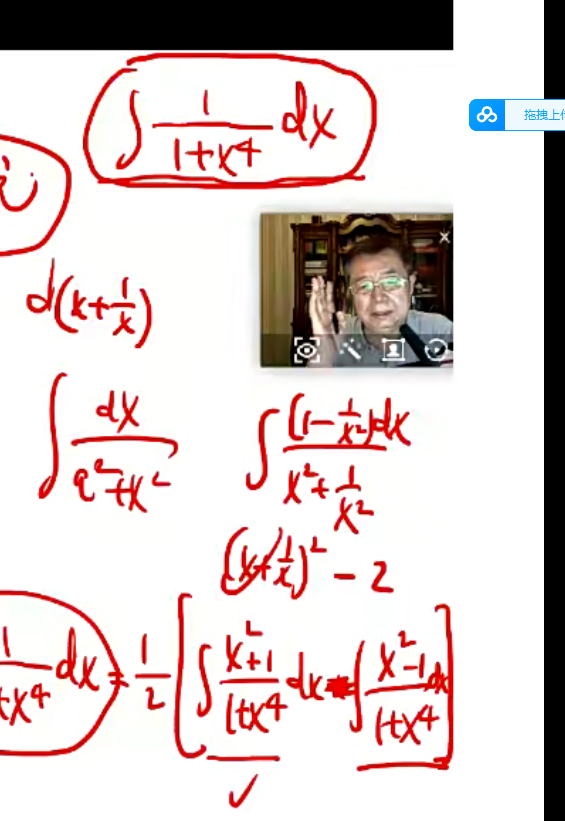 ∫ 1/(1+x⁴) dx
拖拽上
d(x+1/x)
∫ dx/(a²+x²)
∫ (1-1/x²)dx/(x²+1/x²)
(x+1/x)² - 2
1/+x⁴ dx = 1/2 [∫ (x²+1)/(1+x⁴) dx - ∫ (x²-1)/(1+x⁴) dx]
✓